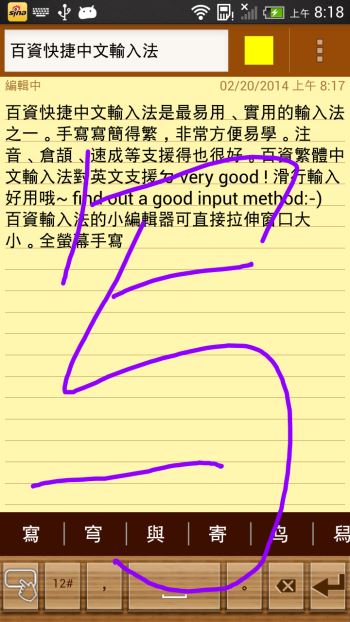 sina
上午 8:18
百資快捷中文輸入法
編輯中
02/20/2014 上午 8:17
百資快捷中文輸入法是最易用、實用的輸入法
之一。手寫寫簡得繁，非常方便易學。注
音、倉頡、速成等支援得也很好。百資繁體中
文輸入法對英文支援ㄉ very good ! 滑行輸入
好用哦~ find out a good input method:-)
百資輸入法的小編輯器可直接拉伸窗口大
小。全螢幕手寫
写
寫 | 穹 | 與 | 寄 | 鸟 |
12# ， 。